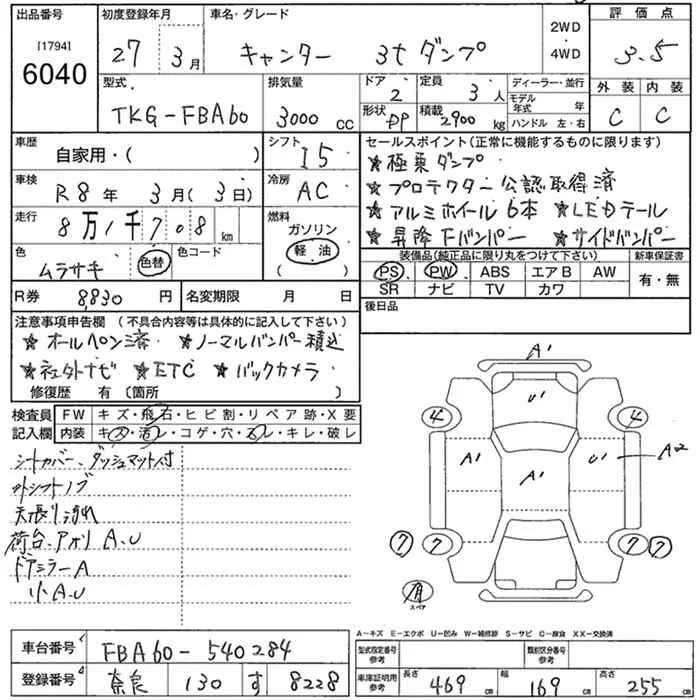 出品番号 初度登録年月 車名・グレード 評価点
[1794]
6040
27年 3月 キャンター 3tダンプ 2WD・4WD 3.5
型式 排気量 ドア 定員 ディーラー・並行 外装 内装
TKG-FBA60 3000 cc 2 3人 モデル年式 年 C C
形状 DP 積載 2900 kg ハンドル 左・右
車歴 自家用・( ) シフト I5
セールスポイント(正常に機能するものに限ります)
★極東ダンプ
車検 R8年 3月(3日) 冷房 AC
★プロテクター公認取得済
走行 8万1千708 km 燃料 ガソリン 軽油
★アルミホイール6本 ★LEDテール
★昇降Fバンパー ★サイドバンパー
色 ムラサキ 色替 色コード
装備品(純正品に限り丸をつけて下さい) 新車保証書
PS PW ABS エアB AW 有・無
SR ナビ TV カワ
R券 8,830円 名変期限 月 日
後日品
注意事項申告欄 (不具合内容等は具体的に記入して下さい)
★オールペン済 ★ノーマルバンパー積込
★社外ナビ ★ETC ★バックカメラ
修復歴 有 〔箇所 〕
検査員記入欄 FW キズ・飛石・ヒビ割・リペア跡・X要
内装 キズ・汚レ・コゲ・穴・スレ・キレ・破レ
シートカバー、ダッシュマット付
外シフトノブ
天張り汚れ
荷台、アオリ A.U
ドアミラーA
小A.U
A'
U'
4 4
A' A' U' A2
7 7 7 7
有
スペア
A-キズ E-エクボ U-凹み W-補修跡 S-サビ C-腐食 XX-交換済
車台番号 FBA60-540284
型式指定番号 参考 類別区分番号 参考
登録番号 奈良 130 す 8228
車庫証明用 参考 長さ 469 cm 幅 169 cm 高さ 255 cm